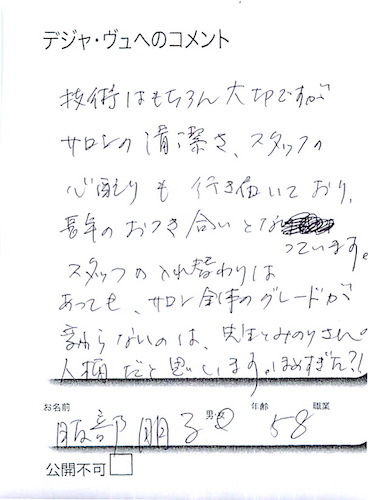 デジャ・ヴュへのコメント
技術はもちろん大切ですが
サロンの清潔さ、スタッフの
心配りも行き届いており、
長年のおつき合いとな
っています。
スタッフの入れ替わりは
あっても、サロン全体のグレードが
変わらないのは、先生とみのりさんの
人柄だと思いします。ほめすぎた?!
お名前 男・女 年齢 職業
服部 朋子 58
公開不可